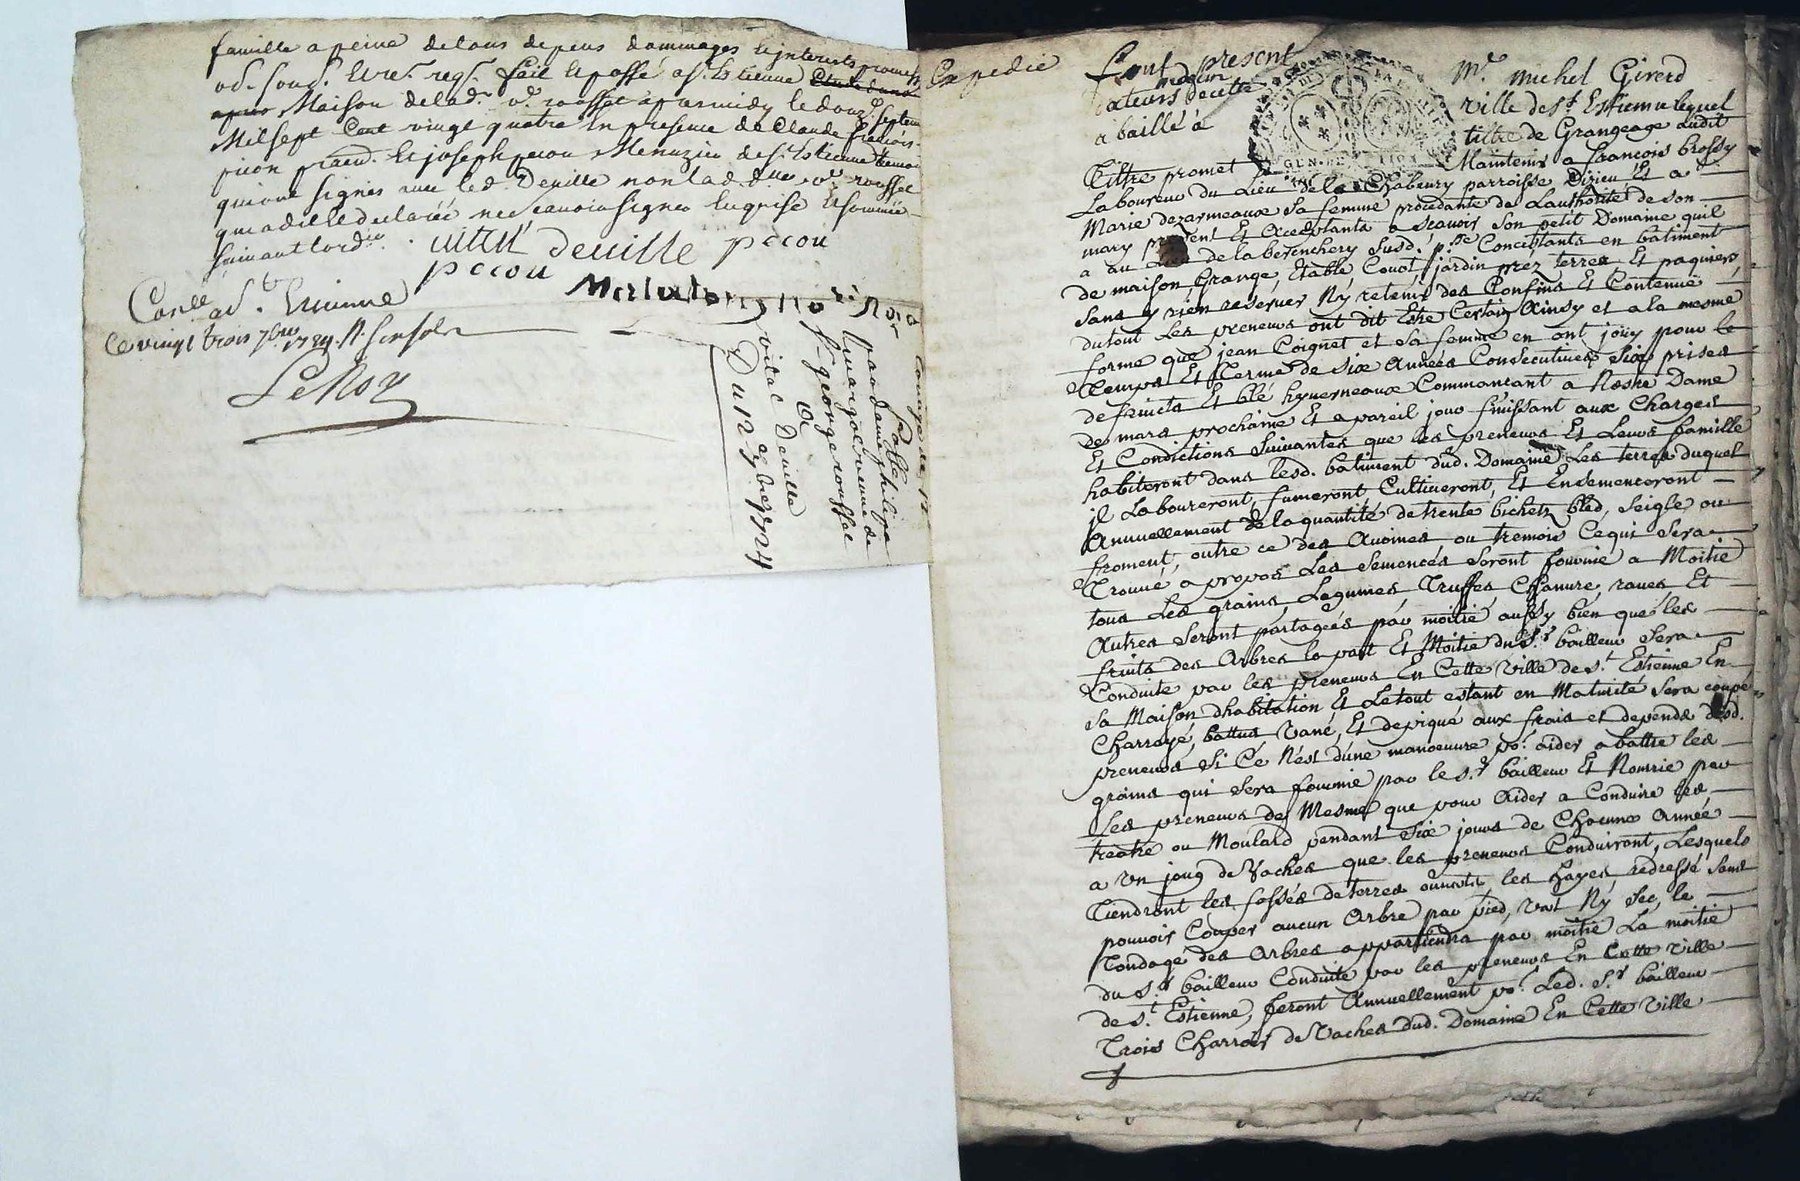 famille a peine de tous depens dommages & interests promes
od. soud. & re. reg. fait & passé a St. Estienne
apres Maison de lad. v. rousset apres midy le douz. septem
Mil sept Cent vingt quatre en presence de Claude François
picon & joseph pecou Menuzier de St. Estienne
qui ont signés avec led. Deville non lad. d. v. rousset
qui a dit & declarée ne scavoir signer enquise & sommée
suivant lord.
deville pecou
pecou
Conlle a St. Etienne
Ce vingt trois 7bre 1724
LeRoy
Du 12e 7bre 1724
vital Deville
Sr. george rousset
Expedié
Sont present
Mr. Michel Girerd
cateurs de cette
ville de St. Estienne lequel
a baillé à
tiltre de Grangeage audit
Tiltre promet
Maintenir a François brossy
Laboureur du Lieu de la Chabeury parroisse Dizieu Et a
Marie dezarmeaux sa femme procedante de Lauthorité de son
mary present Et acceptants a scavoir son petit Domaine quil
a au de la berenchery susd. psse Concistants en batiment
de maison, Grange, Etable Couot, jardin prez terres Et paquiers
sans y rien reserver Ny retenir des Confins Et Contenüe
dutout Les preneurs ont dit Estre Certain Ainsy et a la mesme
forme que jean Coignet et sa femme en ont joüy pour le
Temps Et Terme de six Années Consecutives six prises
de fruicts Et blé hyverneaux Commancant a Nostre Dame
de mars prochaine Et a pareil jour finissant aux Charges
Et Condictions suivantes que les preneurs Et Leurs famille
habiteront dans lesd. batiment dud. Domaine Les terres duquel
il Laboureront, fumeront, Cultiveront, Et Ensemenceront
Annuellement de la quantité de trente bichetz bled, seigle ou
froment, outre ce des Avoines ou tremois Ce qui sera
Trouvé a propos Les semences seront fournie a Moitié
tous Les grains, Legumes, Truffes, Chanvre, raves Et
Autres seront partagées par moitié aussy bien que les
fruits des Arbres la part Et Moitié du Sr. bailleur sera
Conduite par les preneurs En Cette ville de St. Estienne En
sa Maison dhabitation Et Letout estant en Maturité sera coupé
Charrayé, battus vané, Et depiqué aux frais et depends desd.
preneurs si Ce Nest dune manoeuvre pr. aider a battre les
grains qui sera fournie par le Sr. bailleur Et Nourrie par
Les preneurs de Mesme que pour Aider a Conduire les
ou Moulard pendant six jours de Chacune Année
a un joug de Vaches que les preneurs Conduiront, Lesquels
Tiendront les fossés de terres ouverts les hayes redressé sans
pouvoir Couper aucun Arbre par pied, vert Ny sec, le
Tondage des Arbres appartiendra par moitié La moitié
du Sr. bailleur Conduite par les preneurs En Cette ville
de St. Estienne, feront Annuellement pr. Led. Sr. bailleur
Trois Charrois de Vaches dud. Domaine En Cette ville